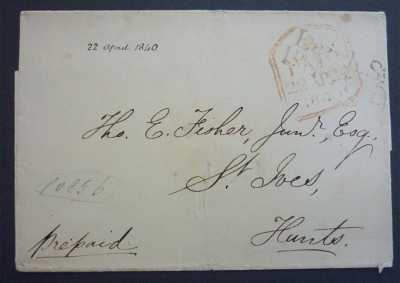 22 April 1840
Tho. E. Fisher, Junr, Esq.
St Ives,
Prepaid
Hunts.